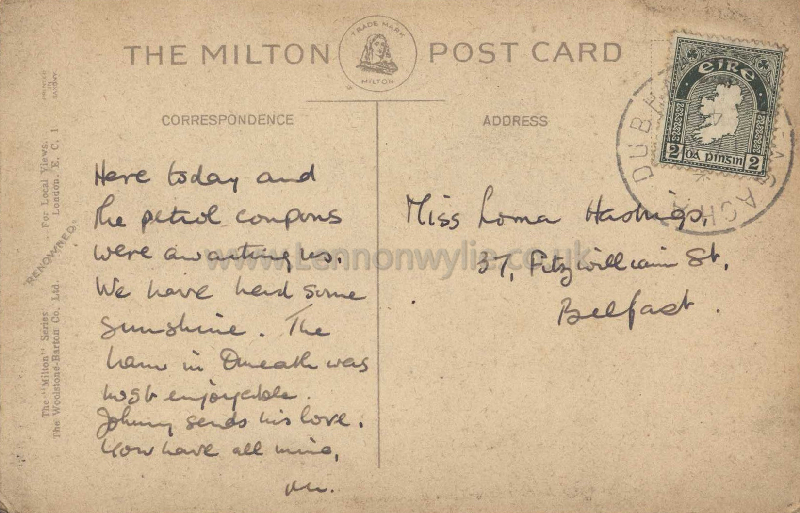 THE MILTON POST CARD
TRADE MARK
MILTON
CORRESPONDENCE
ADDRESS
Here today and
the petrol coupons
were awaiting us.
We have had some
sunshine. The
ham in Omeath was
most enjoyable.
Johnny sends his love.
You have all mine,
Miss Lorna Hastings,
37, Fitzwilliam St,
Belfast.
éire
2 Dá pingin 2
DUBH
The "Milton" Series: For Local Views.
The Woolstone-Barton Co. Ltd. London. E. C. 1
RENOWNED
www.Lennonwylie.co.uk